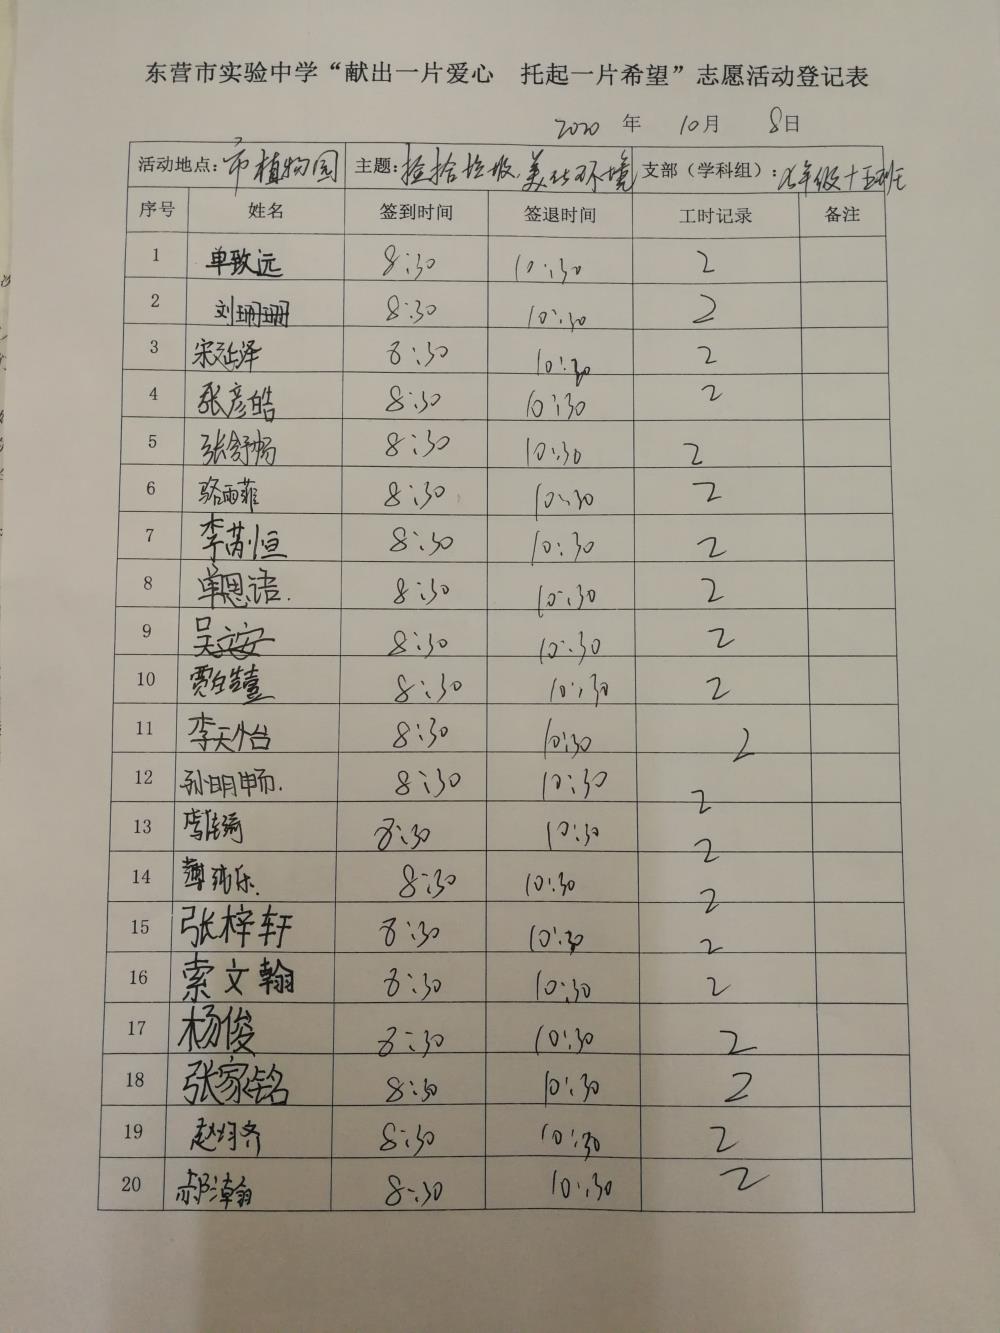 东营市实验中学“献出一片爱心 托起一片希望”志愿活动登记表
2020 年 10月 8日
活动地点:市植物园 主题:捡拾垃圾,美化环境 支部（学科组）:年级十五班
序号 姓名 签到时间 签退时间 工时记录 备注
1 单致远 8:30 10:30 2
2 刘珊珊 8:30 10:30 2
3 宋延泽 8:30 10:30 2
4 张彦皓 8:30 10:30 2
5 张舒畅 8:30 10:30 2
6 骆雨菲 8:30 10:30 2
7 李芮恒 8:30 10:30 2
8 单思语. 8:30 10:30 2
9 吴文安 8:30 10:30 2
10 贾 8:30 10:30 2
11 李天怡 8:30 10:30 2
12 孙明畅. 8:30 10:30 2
13 8:30 10:30 2
14 8:30 10:30 2
15 张梓轩 8:30 10:30 2
16 索文翰 8:30 10:30 2
17 杨俊 8:30 10:30 2
18 张家铭 8:30 10:30 2
19 赵均齐 8:30 10:30 2
20 郝瀚 8:30 10:30 2